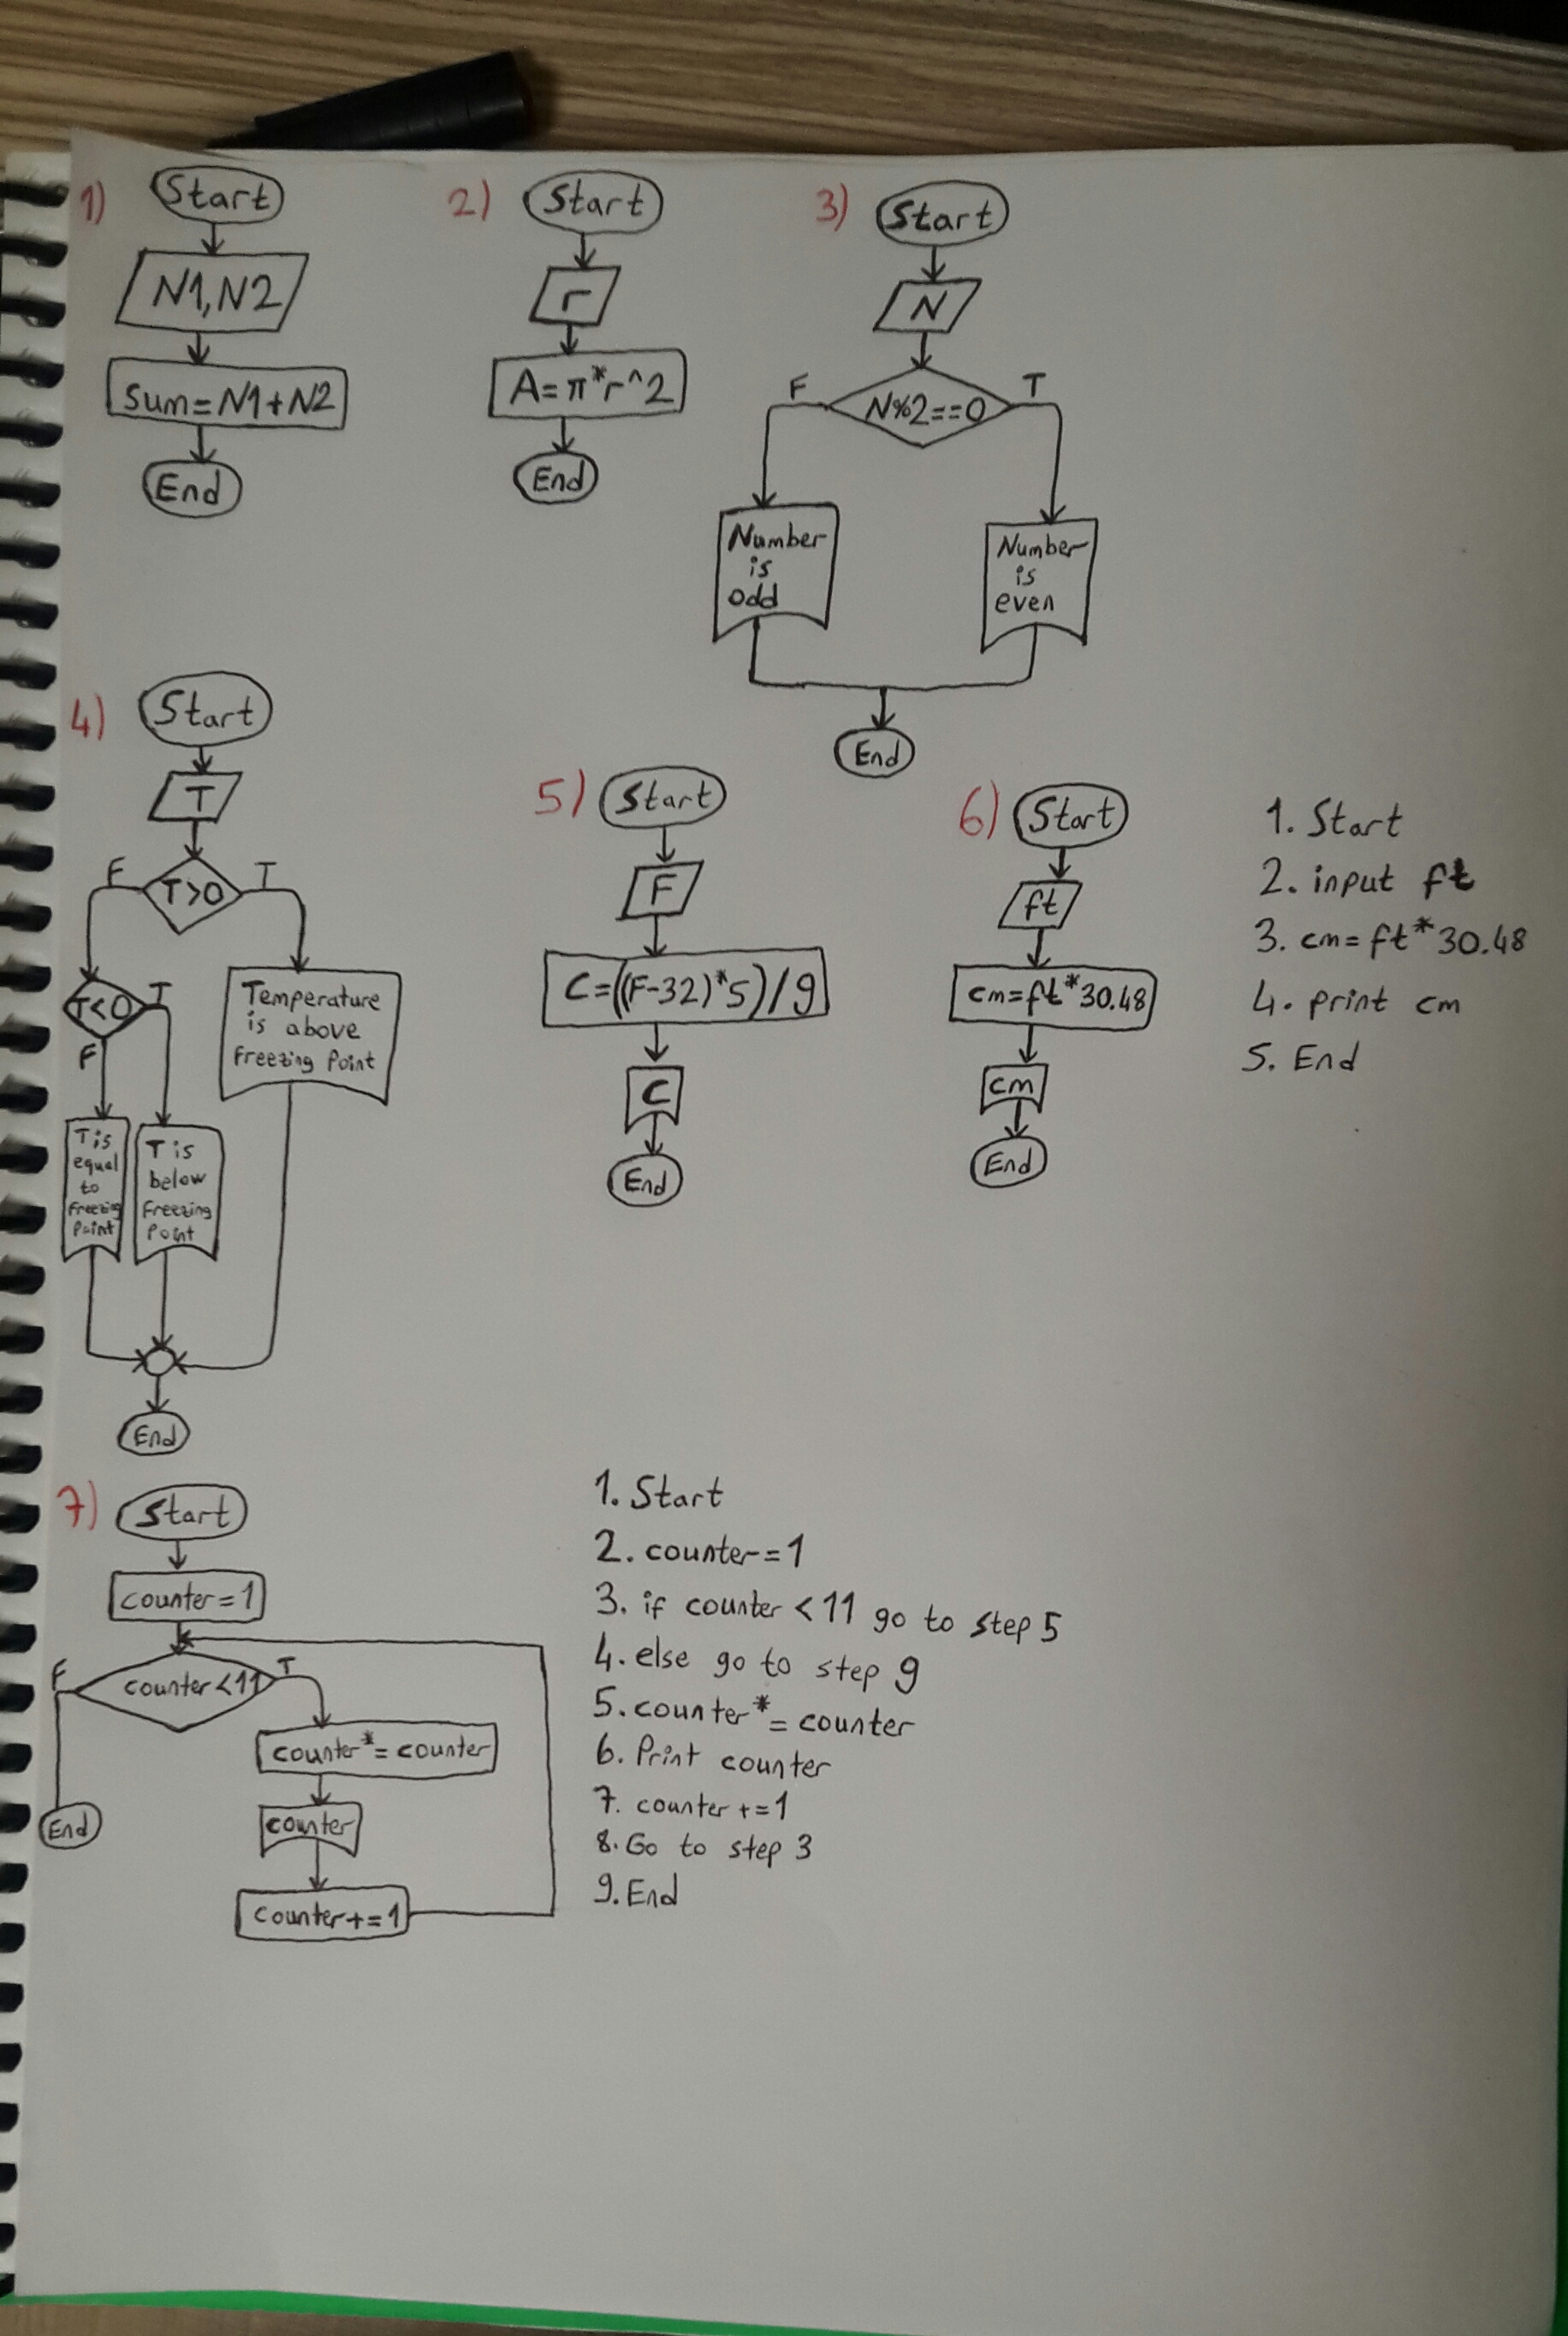 1)
Start
N1,N2
Sum=N1+N2
End
2)
Start
r
A=π*r^2
End
3)
Start
N
F
N%2==0
T
Number
is
odd
Number
is
even
End
4)
Start
T
F
T>0
T
T<0
T
F
Temperature
is above
Freezing Point
T is
equal
to
Freezing
Point
T is
below
Freezing
Point
End
5)
Start
F
C=((F-32)*5)/9
C
End
6)
Start
ft
cm=ft*30.48
cm
End
1. Start
2. input ft
3. cm=ft*30.48
4. print cm
5. End
7)
Start
counter=1
F
counter<11
T
counter*=counter
counter
counter+=1
End
1. Start
2. counter=1
3. if counter <11 go to step 5
4. else go to step 9
5. counter*=counter
6. Print counter
7. counter +=1
8. Go to step 3
9. End